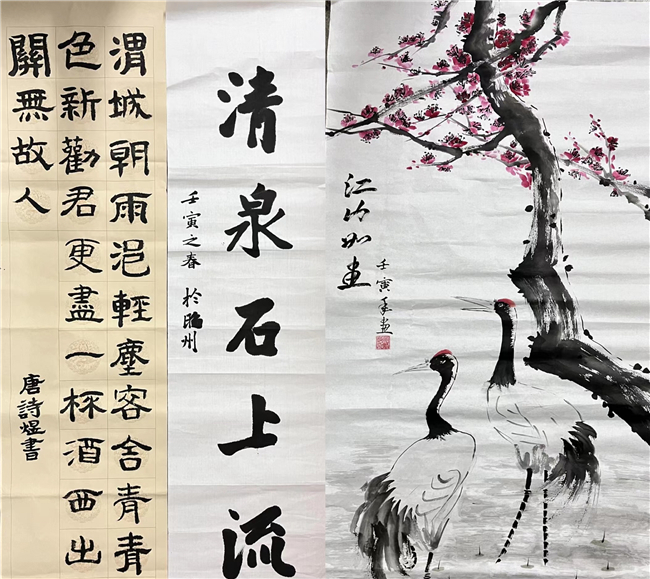 渭城朝雨浥輕塵客舍青青
色新勸君更盡一杯酒西出
關無故人
唐詩煜書
清泉石上流
壬寅之春 於昭州
江山如畫
壬寅年畫